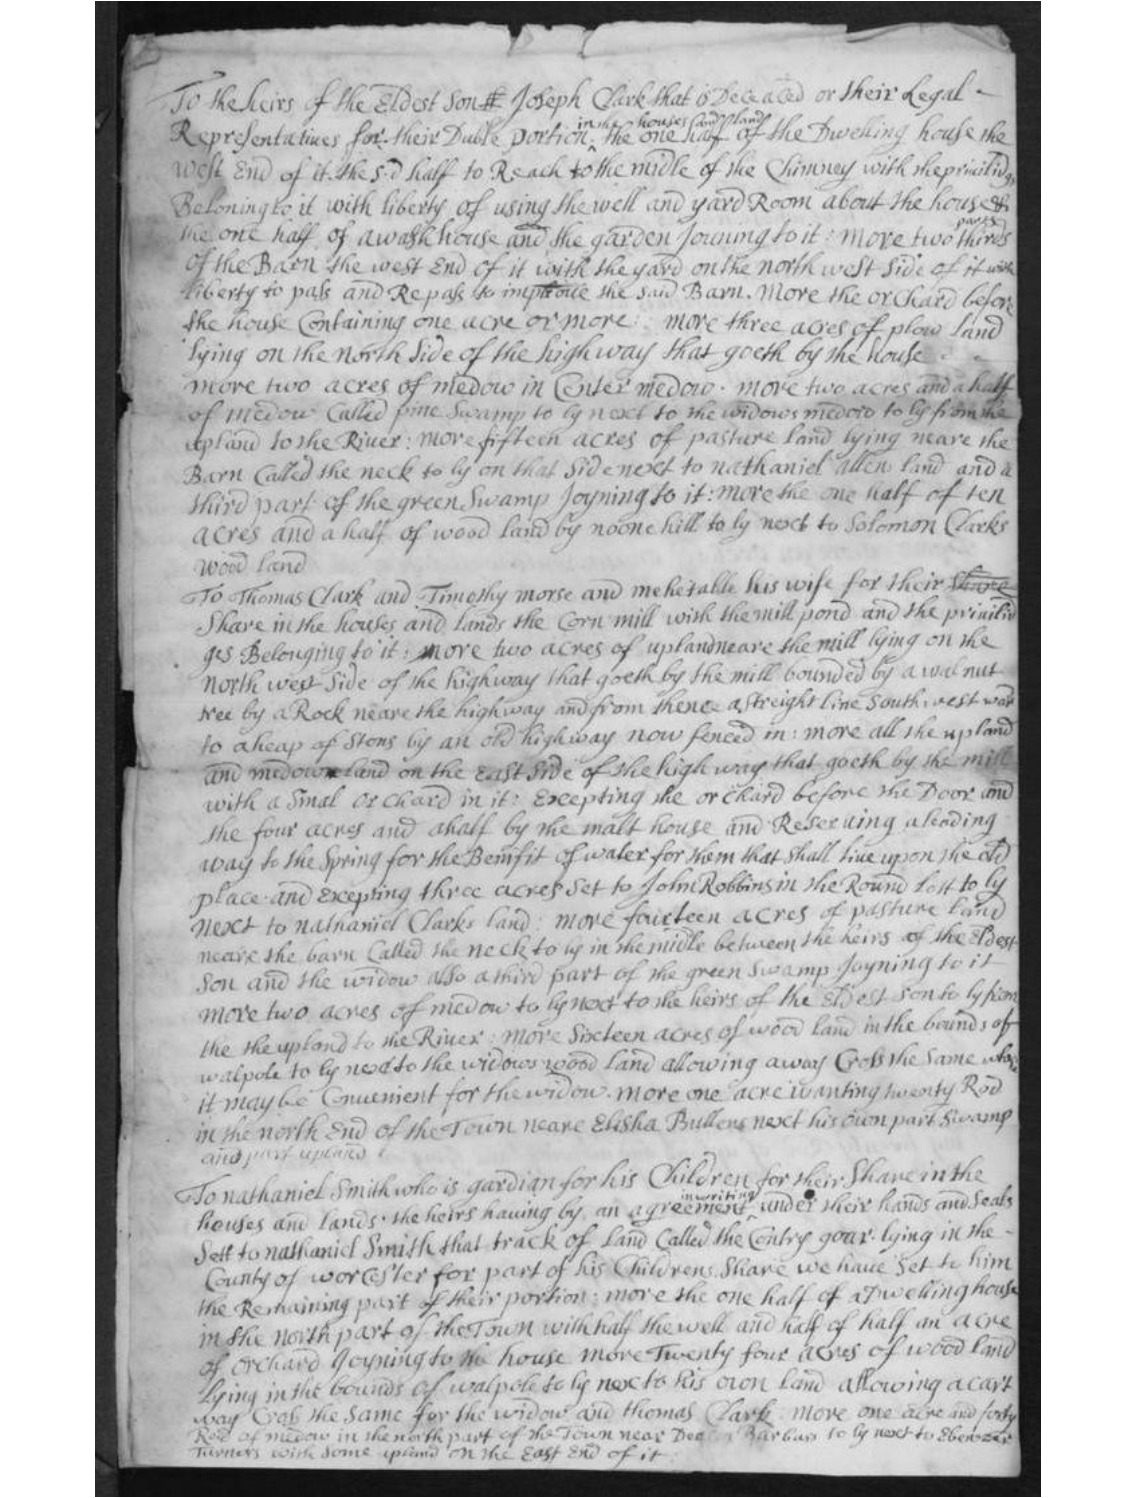 To the heirs of the Eldest Son ## Joseph Clark that is Deceaced or their Legal -
Representatiues for their Duble portion in the houses and land the one half of the Dwelling house the
west End of it. the s:d half to Reach to the midle of the Chimney with the priuilidgs
Beloning to it with liberty of using the well and yard Room about the house &
the one half of a wash house and the garden Joyning to it : more two thirds parts
of the Barn the west End of it with the yard on the north west Side of it with
liberty to pass and Repass to improue the said Barn. More the orchard before
the house Containing one acre or more : more three acres of plow land
lying on the north Side of the highway that goeth by the house
more two acres of medow in Center medow. more two acres and a half
of medow Called pine Swamp to ly next to the widows medow to ly from the
upland to the Riuer : more fifteen acres of pasture land lying neare the
Barn Called the neck to ly on that Side next to nathaniel allen land and a
third part of the green Swamp Joyning to it : more the one half of ten
acres and a half of wood land by noone hill to ly next to Solomon Clarks
wood land
To Thomas Clark and Timothy morse and mehetable his wife for their Share
Share in the houses and lands the Corn mill with the mill pond and the priuilid
ges Belonging to it : more two acres of upland neare the mill lying on the
north west Side of the highway that goeth by the mill bounded by a walnut
tree by a Rock neare the highway and from thence a streight line South west war
to a heap of Stons by an old highway now fenced in : more all the upland
and medow land on the East Side of the high way that goeth by the mill
with a Smal orchard in it : Excepting the orchard before the Door and
the four acres and a half by the malt house and Reseruing a leading
way to the Spring for the Benifit of water for them that shall liue upon the old
place and Excepting three acres Set to John Robbins in the Round lott to ly
next to nathaniel Clarks land : more fourteen acres of pasture land
neare the barn Called the neck to ly in the midle between the heirs of the Eldest
Son and the widow also a third part of the green Swamp Joyning to it
more two acres of medow to ly next to the heirs of the Eldest son to ly from
the the upland to the Riuer : more Sixteen acres of wood land in the bounds of
walpole to ly next to the widows wood land allowing a way Cross the Same where
it may be Conuenient for the widow. more one acre wanting twenty Rod
in the north End of the Town neare Elisha Bullens next his own part Swamp
and part upland
To nathaniel Smith who is gardian for his Children for their Share in the
houses and lands. the heirs hauing by an agreement in writing under their hands and Seals
Sett to nathaniel Smith that track of land Called the Contry goar lying in the -
County of worcester for part of his Childrens Share we haue Set to him
the Remaining part of their portion : more the one half of a Dwelling house
in the north part of the Town with half the well and half of half an acre
of orchard Joyning to the house more Twenty four acres of wood land
lying in the bounds of walpole to ly next to his own land allowing a cart
way Cross the Same for the widow and thomas Clark. more one acre and forty
Rod of medow in the north part of the Town near Barburs to ly next to Ebenezer
Turners with Some upland on the East End of it